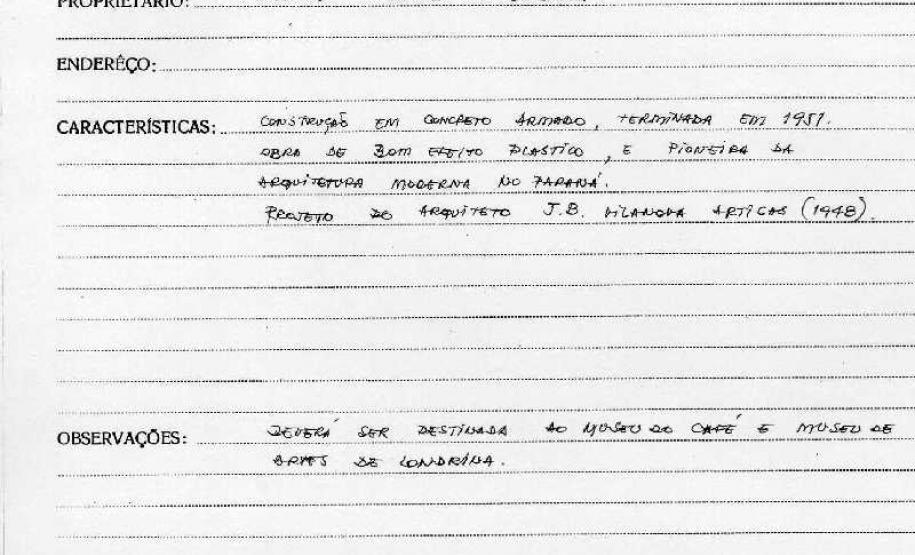 PROPRIETÁRIO:
ENDERÊÇO:
CARACTERÍSTICAS: CONSTRUÇÃO EM CONCRETO ARMADO, TERMINADA EM 1951.
OBRA DE BOM EFEITO PLASTICO, E PIONEIRA DA
ARQUITETURA MODERNA NO PARANÁ.
PROJETO DO ARQUITETO J.B. VILANOVA ARTIGAS (1948).
OBSERVAÇÕES: DEVERÁ SER DESTINADA AO MUSEU DO CAFÉ E MUSEU DE
ARTES DE LONDRINA.